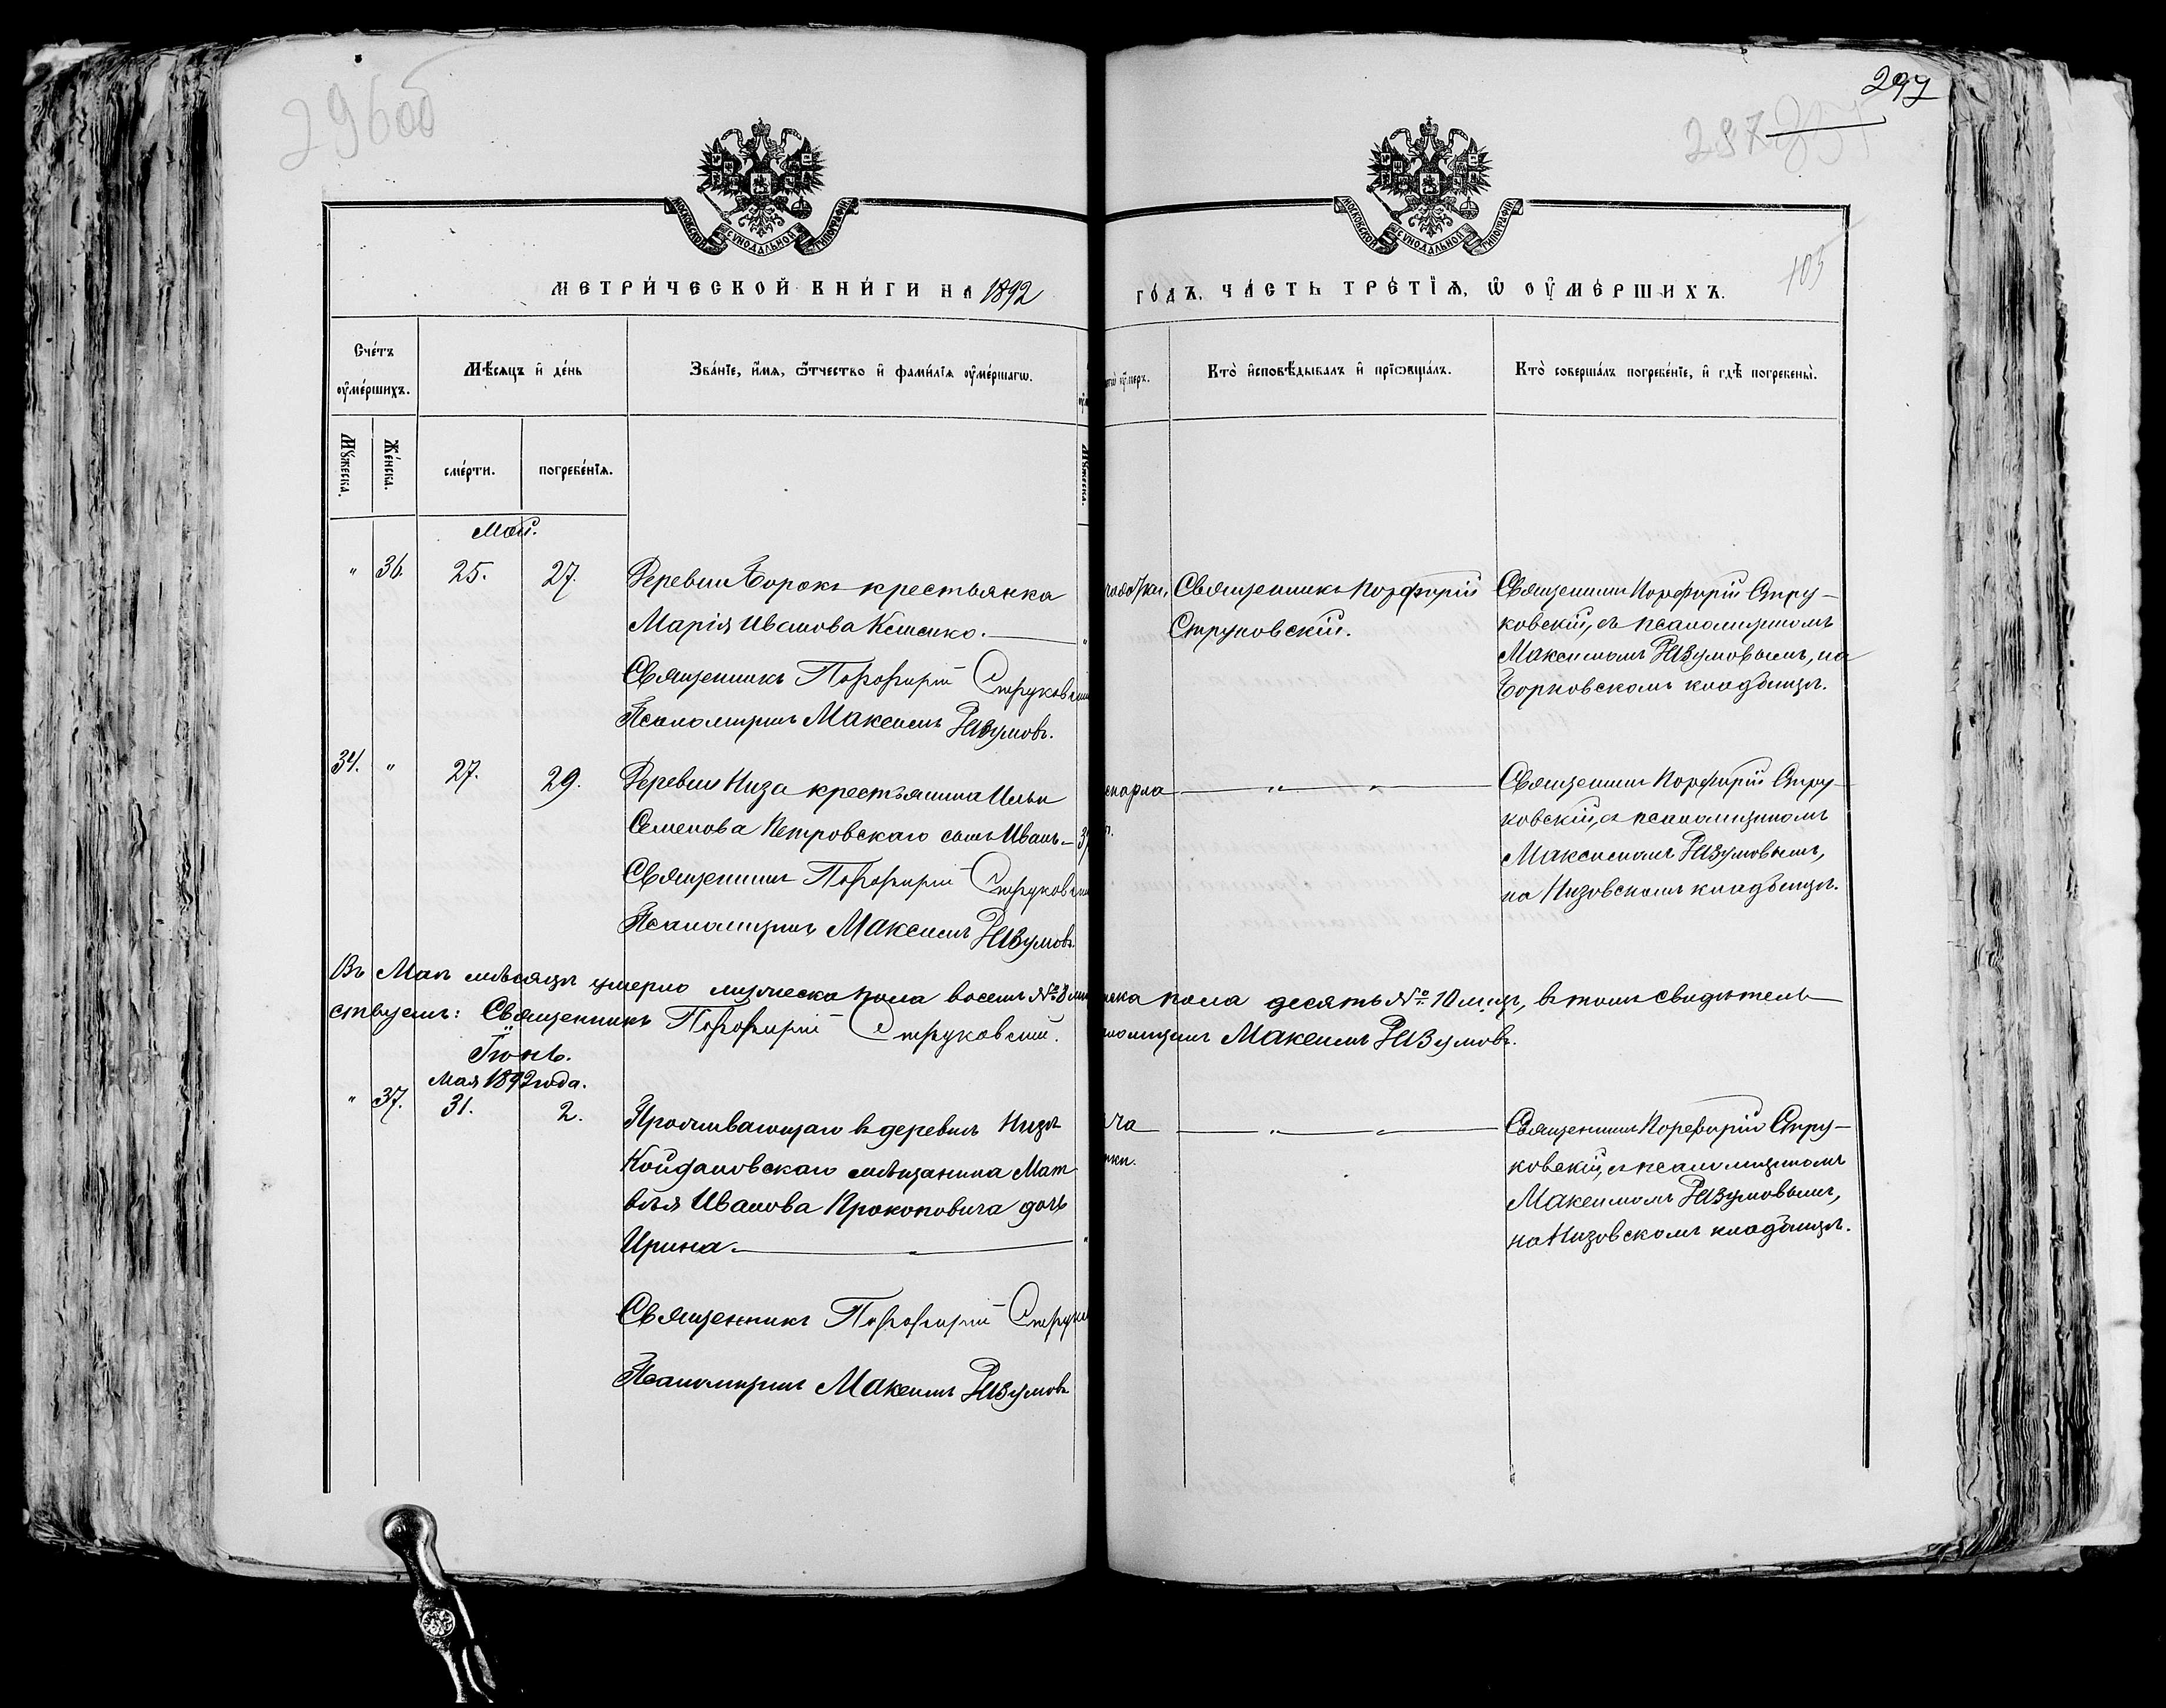 296об
297
287
103
МОСКОВСКОЙ СѴНОДАЛЬНОЙ ТИПОГРАФІИ
МОСКОВСКОЙ СѴНОДАЛЬНОЙ ТИПОГРАФІИ
МЕТРИ́ЧЕСКОЙ КНИ́ГИ НА 1892
ГО́ДЪ, ЧА́СТЬ ТРЕ́ТІѦ, Ѡ ОУ҆МЕ́РШИХЪ.
Сче́тъ оу҆ме́ршихъ.
Мѣ́сяцъ и҆ де́нь
Зва́нїе, и҆́мя, ѻ҆́тчество и҆ фамѝлїѧ оу҆ме́ршагѡ.
оу҆́меръ.
Кто̀ и҆сповѣ́дывалъ и҆ прїѡбща́лъ.
Кто̀ соверша́лъ погребе́нїе, и҆ гдѣ̀ погребены̀.
Мꙋ́жеска.
Же́нска.
сме́рти.
погребе́нїѧ.
Мꙋ́жеска.
Май.
" 36. 25. 27. Деревни Борокъ крестьянка
Марія Иванова
Священникъ Порфирій Струковскій
Псаломщикъ Максимъ Разумовъ.
Священникъ Порфирій
Струковскій.
Священникъ Порфирій Стру-
ковскій, съ псаломщикомъ
Максимомъ Разумовымъ, на
Борковскомъ кладбищѣ.
34. " 27. 29. Деревни Низа крестьянина Ильи
Семенова Петровскаго сынъ Иванъ.
Священникъ Порфирій Струковскій
Псаломщикъ Максимъ Разумовъ
" "
Священникъ Порфирій Стру-
ковскій, съ псаломщикомъ
Максимомъ Разумовымъ,
на Низовскомъ кладбищѣ.
Въ Маѣ мѣсяцѣ умерло мужеска пола восемь №8 пола десять №10 лицъ, въ томъ свидѣтель-
ствуемъ: Священникъ Порфирій Струковскій. Максимъ Разумовъ.
Іюнь.
Мая 1892 года.
" 37. 31. 2. Проживающаго въ деревнѣ Низѣ
Койдановскаго мѣщанина Мат
вѣя Иванова Прокоповича дочь
Ирина.
Священникъ Порфирій Струк
Псаломщикъ Максимъ Разумовъ
" "
Священникъ Порфирій Стру-
ковскій, съ псаломщикомъ
Максимомъ Разумовымъ,
на Низовскомъ кладбищѣ.